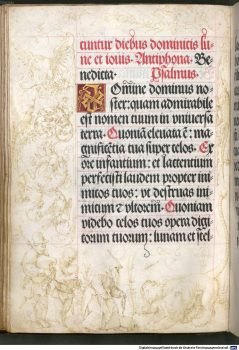 cuntur diebus dominicis lu-
ne et iouis. Antiphona. Be-
nedicta. Psalmus.
Domine dominus no-
ster: quam admirabile
est nomen tuum in vniuersa
terra. Quoniā eleuata ē: ma-
gnificētia tua super celos. Ex
ore infantium: et lactentium
perfecisti laudem propter ini-
micos tuos: vt destruas ini-
micum et vltorem. Quoniam
videbo celos tuos opera digi-
torum tuorum: lunam et stel-